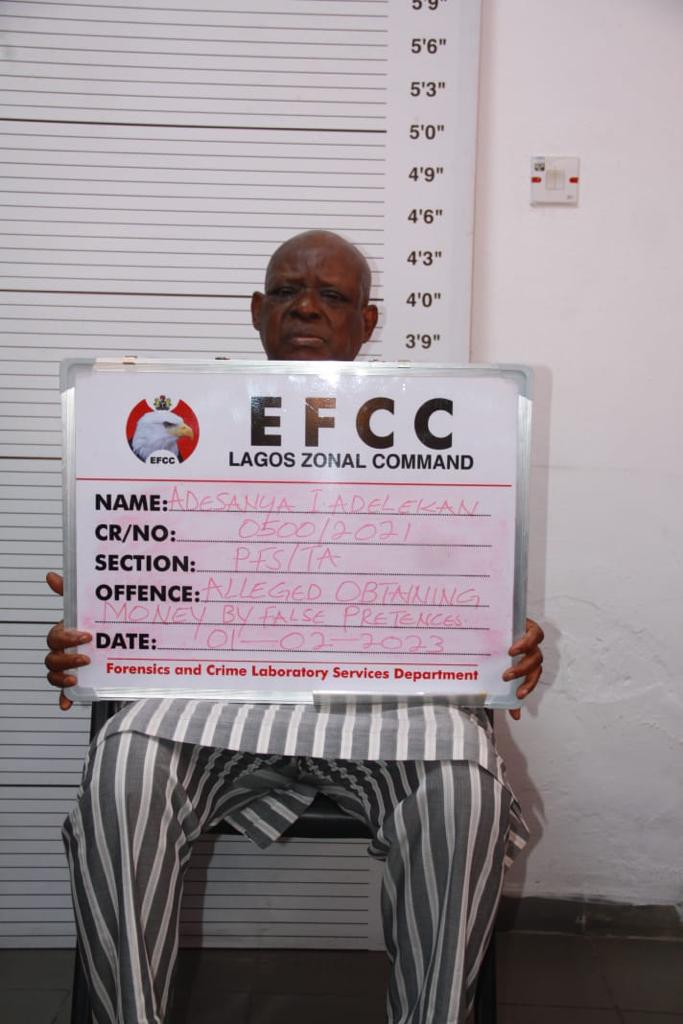 5'9"
5'6"
5'3"
5'0"
4'9"
4'6"
4'3"
4'0"
3'9"
EFCC
EFCC
LAGOS ZONAL COMMAND
NAME: ADESANYA I. ADELEKAN
CR/NO: 0500/2021
SECTION: PFS/TA
OFFENCE: ALLEGED OBTAINING
MONEY BY FALSE PRETENCES
DATE: 01-02-2023
Forensics and Crime Laboratory Services Department